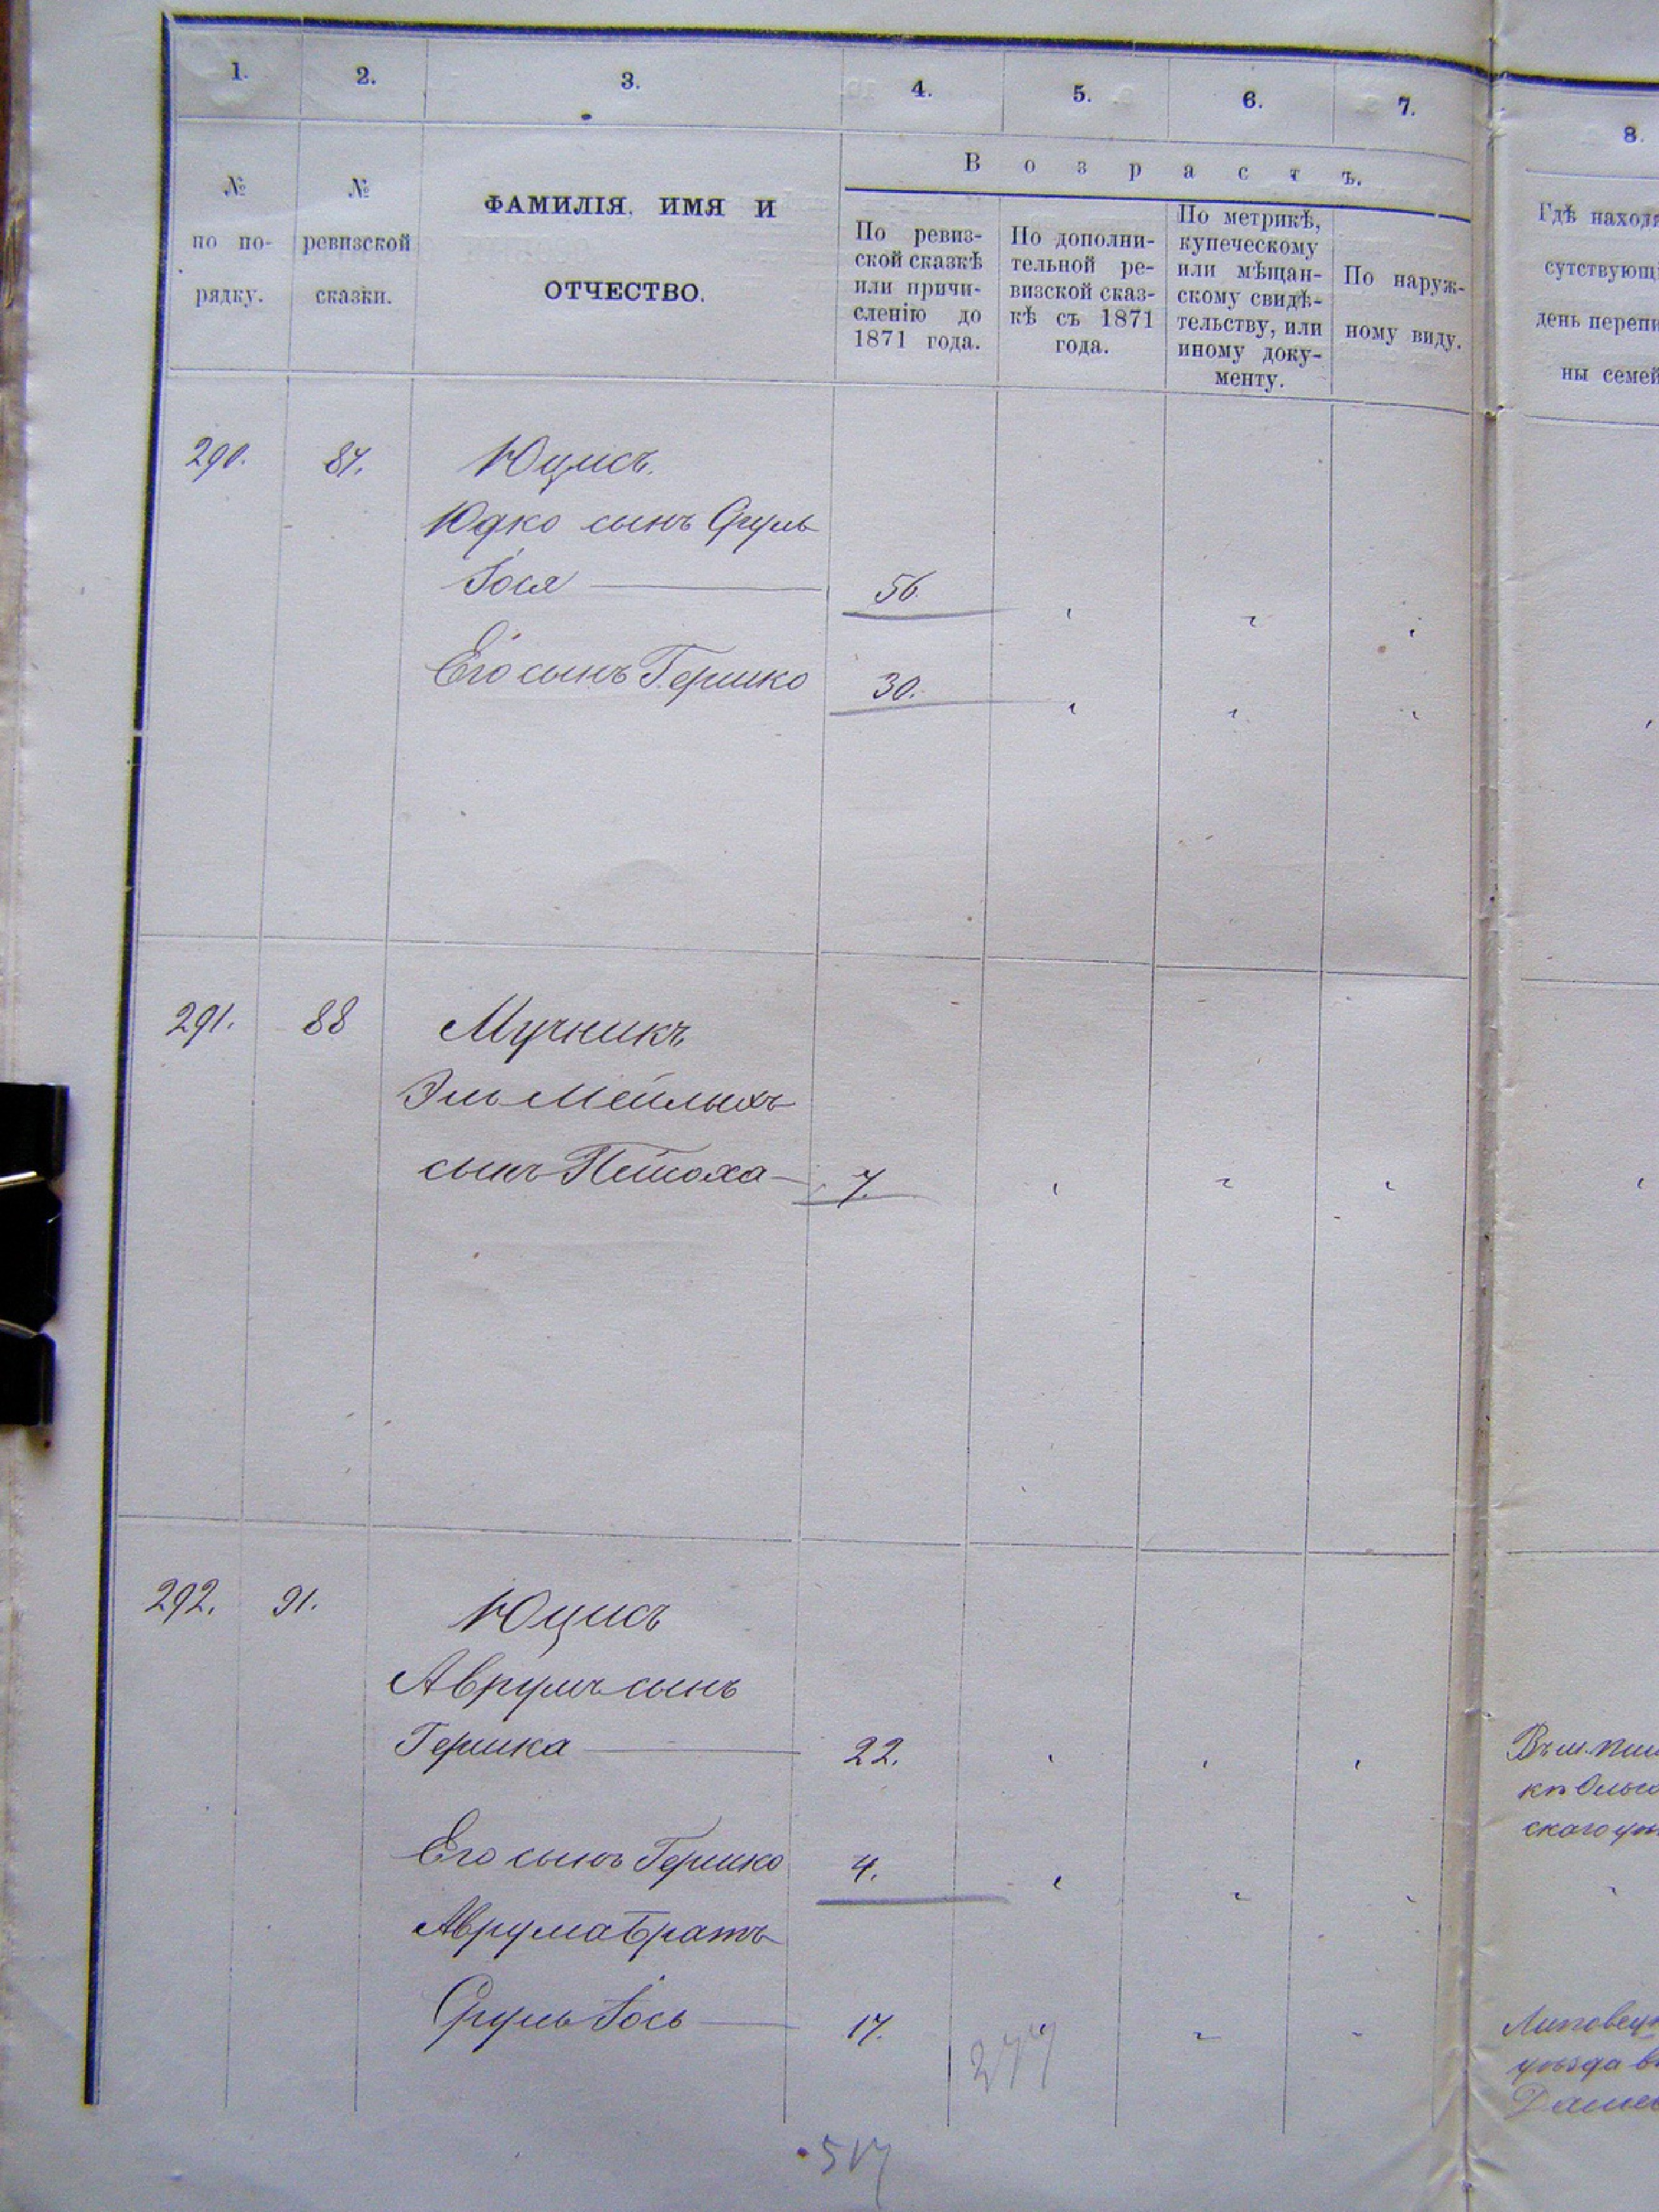 1. 2. 3. 4. 5. 6. 7. 8.
№
по по-
рядку.
№
ревизской
сказки.
ФАМИЛІЯ, ИМЯ И
ОТЧЕСТВО.
Возрастъ.
По ревиз-
ской сказкѣ
или причи-
сленію до
1871 года.
По дополни-
тельной ре-
визской сказ-
кѣ съ 1871
года.
По метрикѣ,
купеческому
или мѣщан-
скому свидѣ-
тельству, или
иному доку-
менту.
По наруж-
ному виду.
Гдѣ находя
сутствующі
день перепи
ны семей
290. 87. Юцисъ.
Юдко сынъ Сруль
Іося 56.
Его сынъ Гершко 30.
291. 88 Мучникъ
Эль Мейлыхъ
сынъ 7.
292. 91. Юцисъ
Аврумъ сынъ
Гершка 22.
Его сынъ Гершко 4.
Аврума братъ
Сруль Іось 17.
скаго
Липовец
уѣзда в
277
517